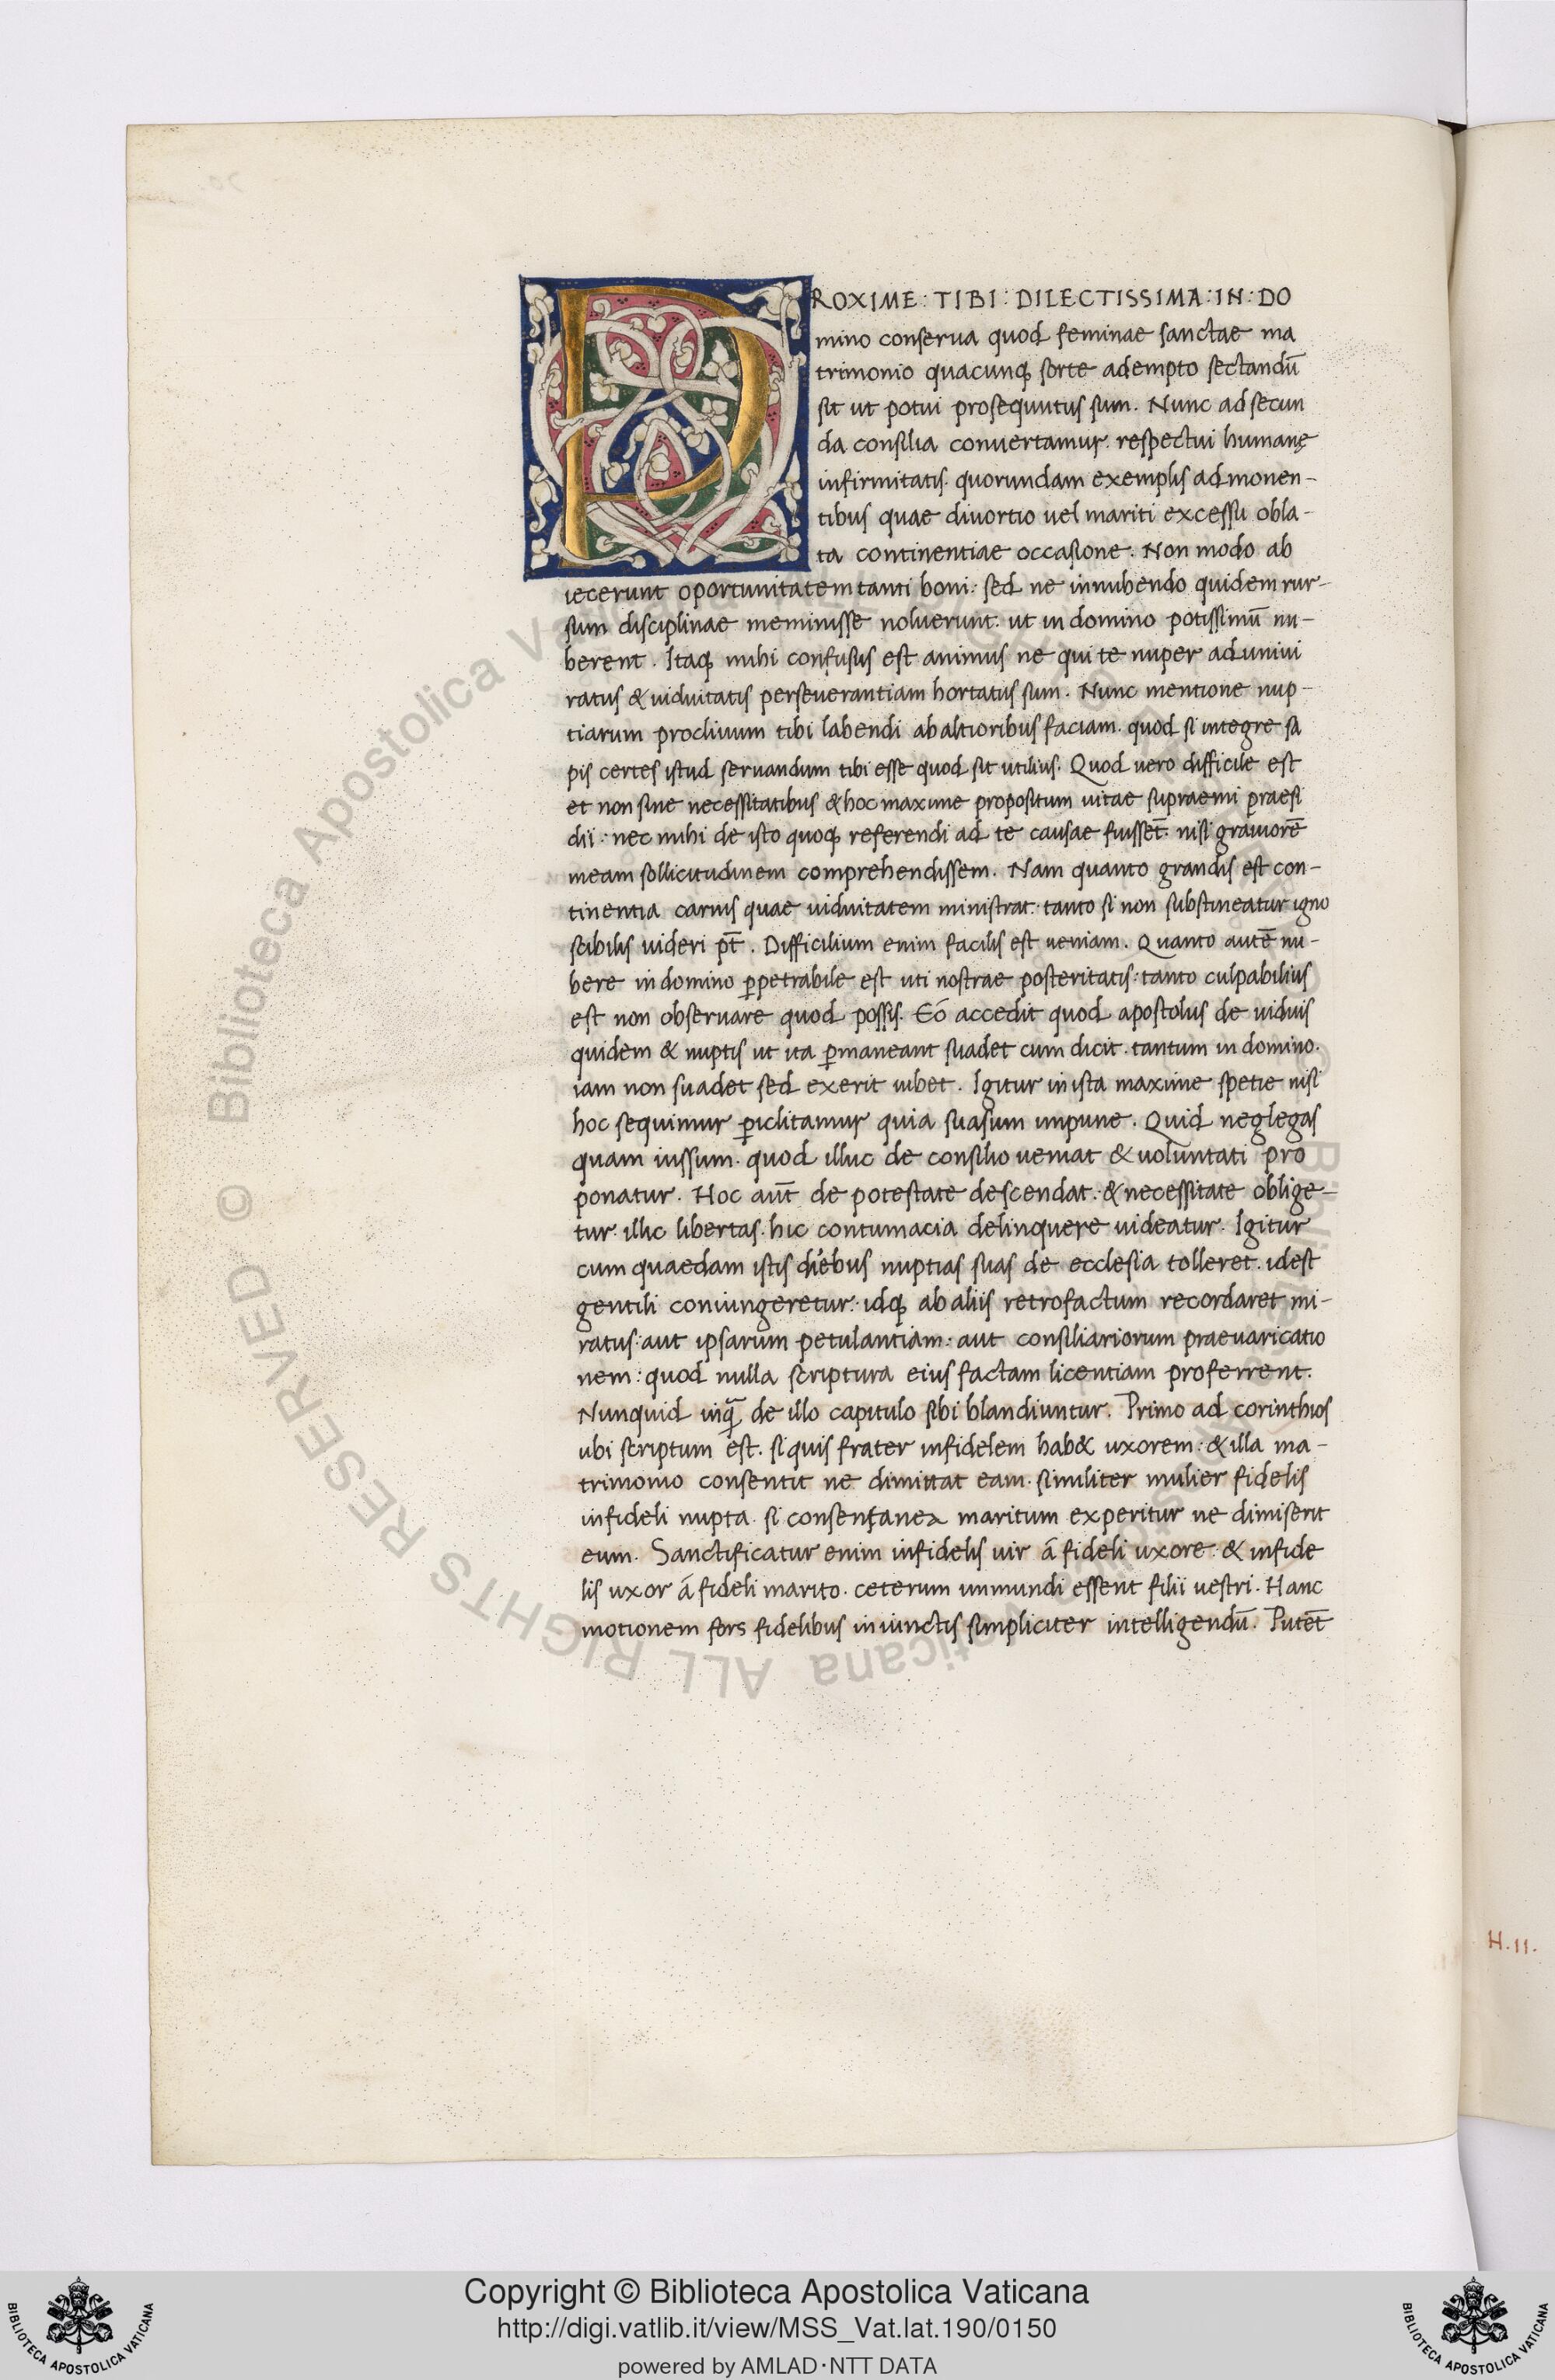 PROXIME : TIBI : DILECTISSIMA : IN : DO
mino conserua quod feminae sanctae ma
trimonio quacunq; sorte adempto sectandū
sit ut potui prosequutus sum. Nunc ad secun
da consilia conuertamur. respectui humanę
infirmitatis. quorundam exemplis admonen-
tibus quae diuortio uel mariti excessu obla-
ta continentiae occasione. Non modo ab
iecerunt oportunitatem tanti boni: sed ne innubendo quidem rur-
sum disciplinae meminisse noluerunt. ut in domino potissimū nu-
berent. Itaq; mihi confusus est animus ne qui te nuper ad uniui
ratus & uiduitatis perseuerantiam hortatus sum. Nunc mentione nup-
tiarum procliuum tibi labendi ab altioribus faciam. quod si integre sa
pis certes istud seruandum tibi esse quod sit utilius. Quod uero difficile est
et non sine necessitatibus & hoc maxime propositum uitae supraemi praesi
dii: nec mihi de isto quoq; referendi ad te causae fuisset̄. nisi grauiorē
meam sollicitudinem comprehendissem. Nam quanto grandis est con-
tinentia carnis quae uiduitatem ministrat: tanto si non substineatur igno
scibilis uideri pt̄. Difficilium enim facilis est ueniam. Quanto autē nu-
bere in domino ꝑpetrabile est uti nostrae posteritatis: tanto culpabilius
est non obseruare quod possis. Eó accedit quod apostolus de uiduis
quidem & nuptis ut ita ꝑmaneant suadet cum dicit. tantum in domino.
iam non suadet sed exerit iubet. Igitur in ista maxime spetie nisi
hoc sequimur ꝑiclitamur quia suasum impune. Quid neglegas
quam iussum. quod illuc de consilio ueniat & uoluntati pro
ponatur. Hoc aut̄ de potestate descendat. & necessitate oblige-
tur. illic libertas. hic contumacia delinquere uideatur. Igitur
cum quaedam istis diebus nuptias suas de ecclesia tolleret. idest
gentili coniungeretur: idq; ab aliis retrofactum recordaret mi-
ratus: aut ipsarum petulantiam: aut consiliariorum praeuaricatio
nem: quod nulla scriptura eius factam licentiam proferrent.
Nunquid de illo capitulo sibi blandiuntur. Primo ad corinthios
ubi scriptum est. si quis frater infidelem hab& uxorem: & illa ma-
trimonio consentit ne dimittat eam. similiter mulier fidelis
infideli nupta. si consentanea maritum experitur ne dimiserit
eum. Sanctificatur enim infidelis uir á fideli uxore: & infide
lis uxor á fideli marito. ceterum immundi essent filii uestri. Hanc
motionem fors fidelibus iniunctis simpliciter intelligendū. Putēt
H.II.
© Biblioteca Apostolica Vaticana ALL RIGHTS RESERVED
Copyright © Biblioteca Apostolica Vaticana
http://digi.vatlib.it/view/MSS_Vat.lat.190/0150
powered by AMLAD·NTT DATA
BIBLIOTECA APOSTOLICA VATICANA
BIBLIOTECA APOSTOLICA VATICANA